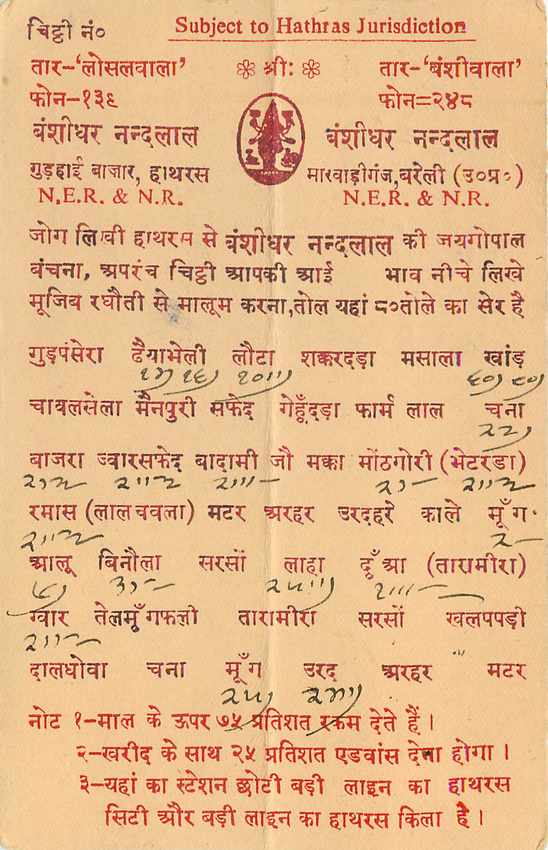 चिट्ठी नं० Subject to Hathras Jurisdiction
तार-‘लोसलवाला’ श्रीः तार-‘बंशीवाला’
फोन-१३९ फोन=२४८
बंशीधर नन्दलाल बंशीधर नन्दलाल
गुड़हाई बाजार, हाथरस मारवाड़ीगंज,बरेली (उ०प्र०)
N.E.R. & N.R. N.E.R. & N.R.
जोग लिखी हाथरस से बंशीधर नन्दलाल की जयगोपाल
बंचना, अपरंच चिट्ठी आपकी आई भाव नीचे लिखे
मूजिब रघौती से मालूम करना,तोल यहां ८०तोले का सेर है
गुड़पंसेरा ढैयाभेली लौटा शक्करदड़ा मसाला खांड़
चावलसेला मैनपुरी सफेद गेहूँदड़ा फार्म लाल चना
बाजरा ज्वारसफेद बादामी जौ मक्का मोंठगोरी (भेटरंडा)
रमास (लालचवला) मटर अरहर उरदहरे काले मूँग
आलू बिनौला सरसों लाहा दूँआ (तारामीरा)
ग्वार तेलमूँगफली तारामीरा सरसों खलपपड़ी
दालधोवा चना मूँग उरद अरहर मटर
नोट १-माल के ऊपर ७५ प्रतिशत रकम देते हैं ।
२-खरीद के साथ २५ प्रतिशत एडवांस देना होगा ।
३-यहां का स्टेशन छोटी बड़ी लाइन का हाथरस
सिटी और बड़ी लाइन का हाथरस किला है ।